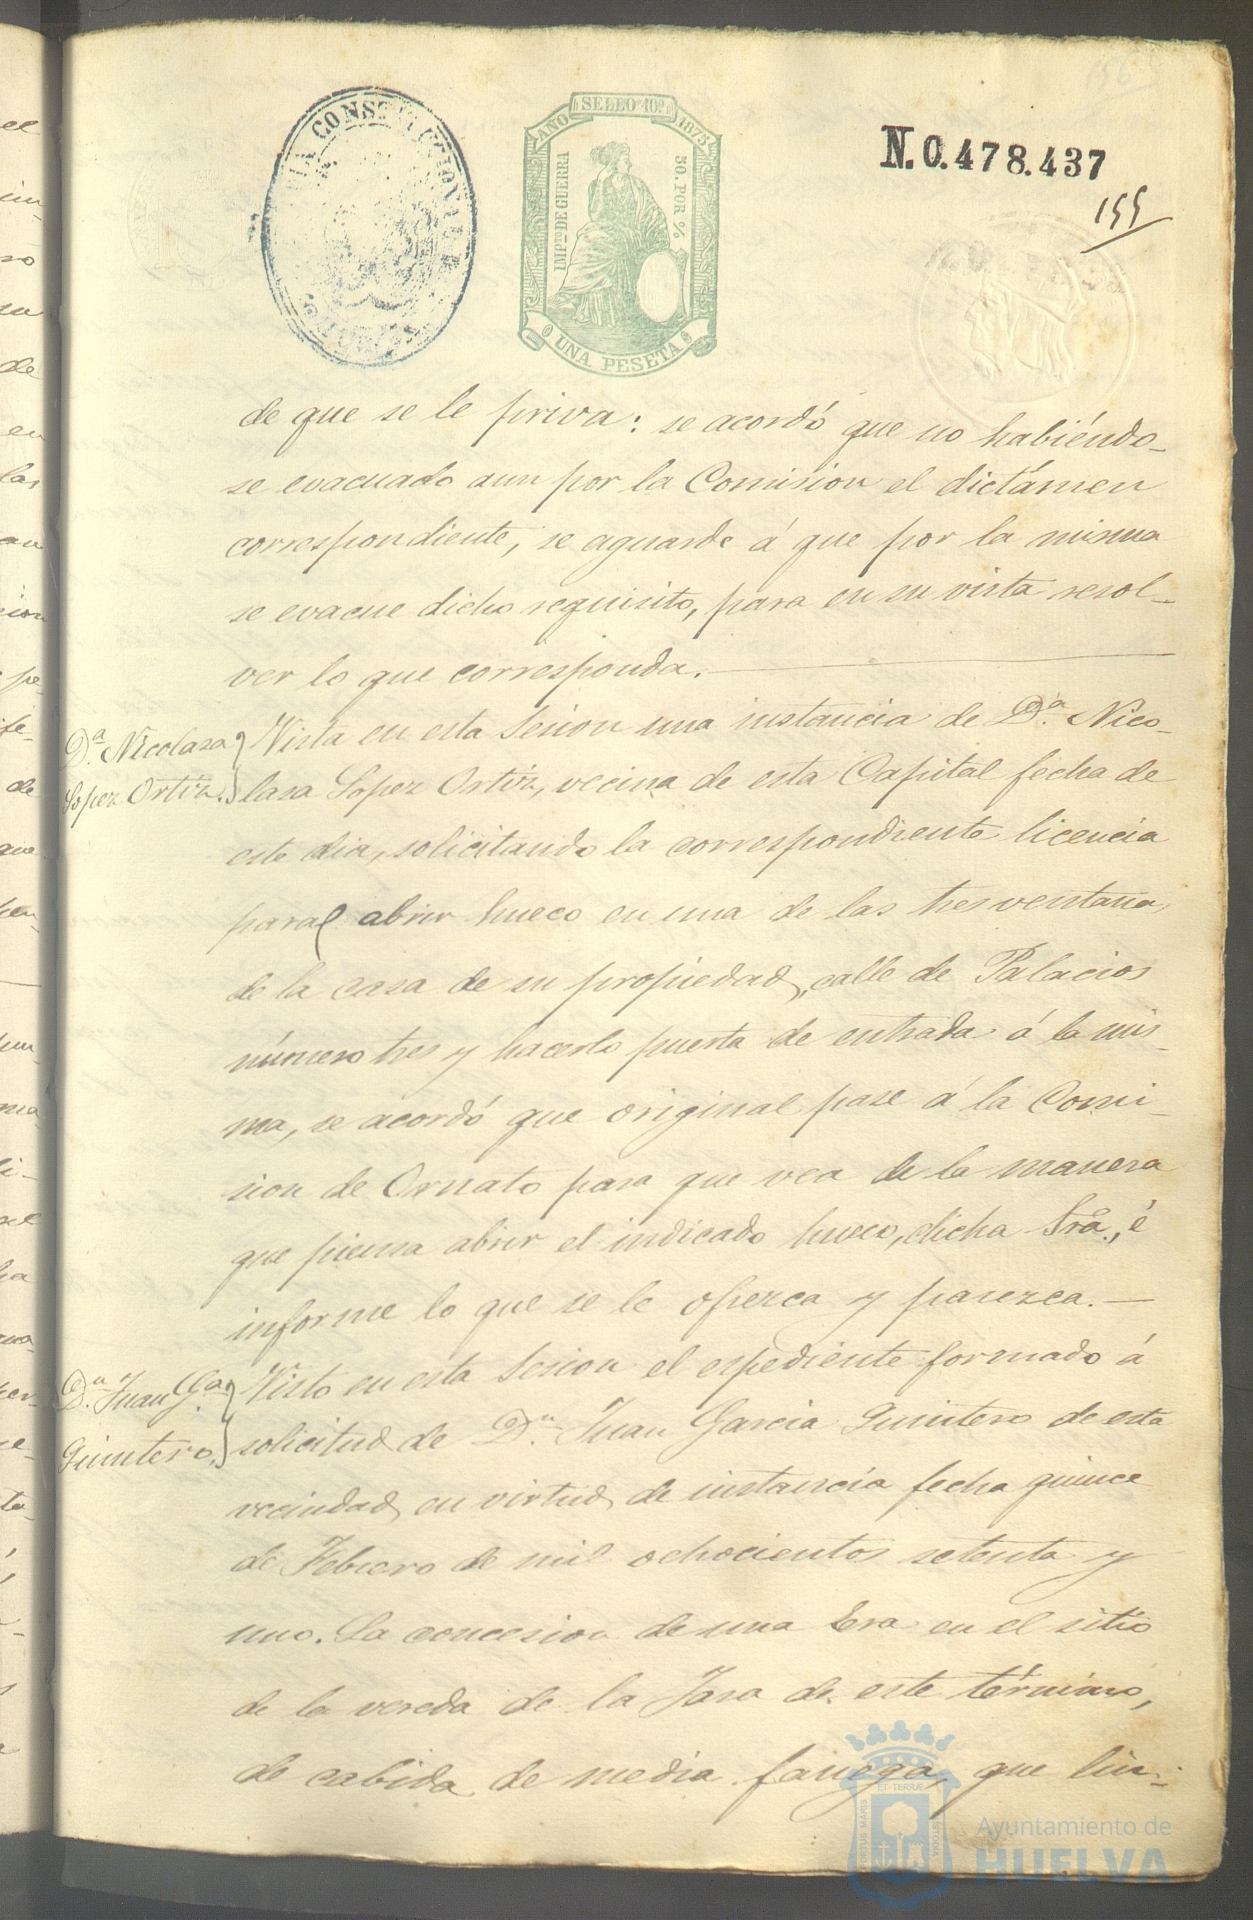 CONSTITUCIONAL
SELLO 10º
AÑO 1875
IMPTO DE GUERRA
50. POR %
UNA PESETA
N.0.478.437
155
de que se le priva: se acordó que no habiéndo-
se evacuado aun por la Comision el dictámen
correspondiente, se aguarde á que por la misma
se evacue dicho requisito, para en su vista resol-
ver lo que corresponda.
Dª. Nicolasa
Lopez Ortiz.
Vista en esta Sesion una instancia de Dª. Nico-
lasa Lopez Ortiz, vecina de esta Capital fecha de
este dia, solicitando la correspondiente licencia
para abrir hueco en una de las tres ventanas
de la casa de su propiedad, calle de Palacios
número tres y hacerlo puerta de entrada á la mis-
ma, se acordó que original pase á la Comi-
sion de Ornato para que vea de la manera
que piensa abrir el indicado hueco, dicha Srâ., é
informe lo que se le ofrezca y parezca.
Dn. Juan Gª.
Quintero.
Visto en esta Sesion el espediente formado á
solicitud de Dn. Juan Garcia Quintero de esta
vecindad, en virtud de instancia fecha quince
de Febrero de mil ochocientos setenta y
uno. La concesion de una Era en el sitio
de la vereda de la Jara de este término,
de cabida de media fanega, que lin-
PORTUS MARIS
ET TERRÆ
CUSTODIA
Ayuntamiento de
HUELVA